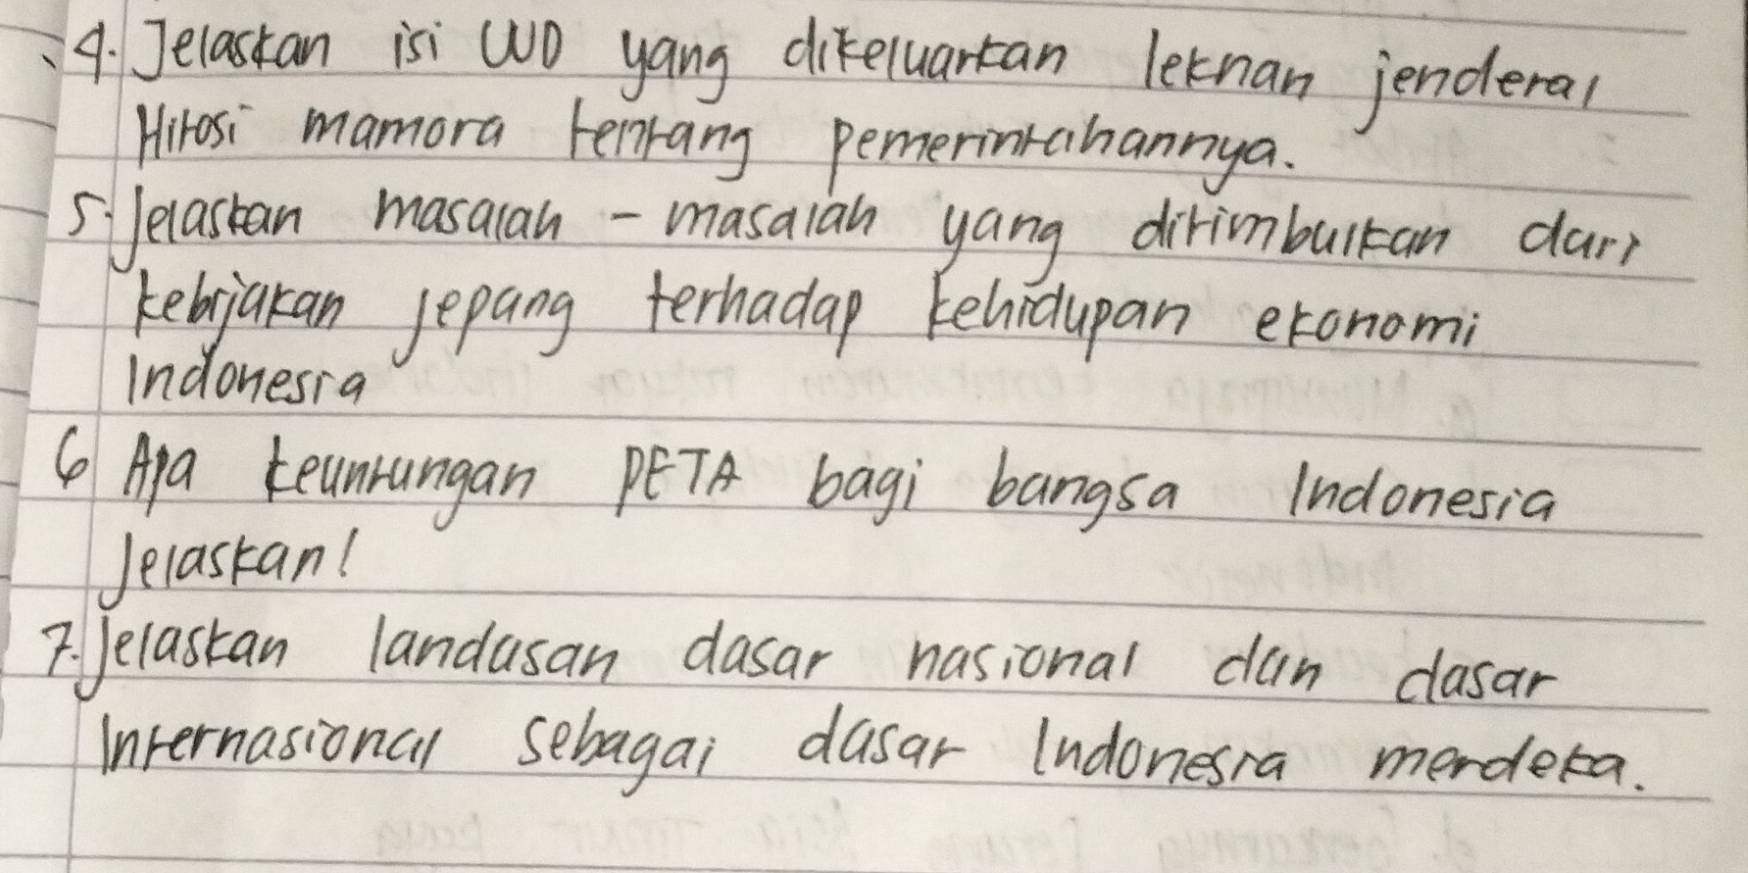 4. Jelaskan isi UUD yang dikeluarkan leknan jenderal
Hitosi mamora tentang pemerintahannya.
5. Jelaskan masalah - masalah yang ditimbulkan dari
kebijakan jepang terhadap kehidupan ekonomi
Indonesia
6 Apa keuntungan PETA bagi bangsa Indonesia
Jelaskan!
7. Jelaskan landasan dasar nasional dan dasar
Internasional sebagai dasar Indonesia merdeka.